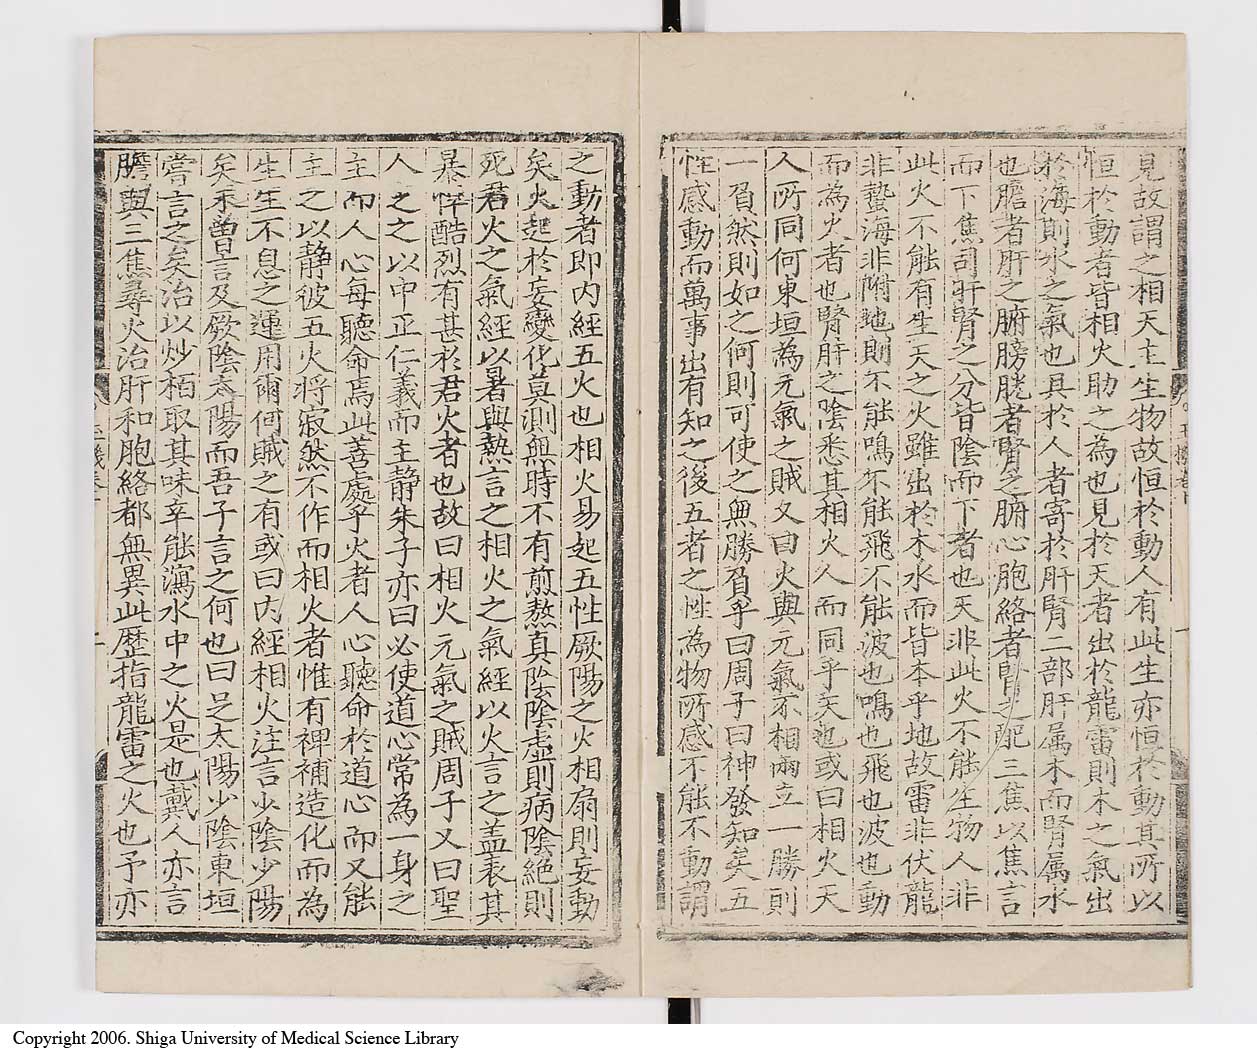 見故謂之相天主生物故恒於動人有此生亦恒於動其所以
恒於動者皆相火助之為也見於天者出於龍雷則木之氣出
於海則水之氣也具於人者寄於肝腎二部肝属木而腎属水
也膽者肝之腑膀胱者腎之腑心胞絡者腎之配三焦以焦言
而下焦司肝腎之分皆陰而下者也天非此火不能生物人非
此火不能有生天之火雖出於木水而皆本乎地故雷非伏龍
非蟄海非附地則不能鳴不能飛不能波也鳴也飛也波也動
而為火者也腎肝之陰悉其相火人而同乎天也或曰相火天
人所同何東垣為元氣之賊又曰火與元氣不相兩立一勝則
一負然則如之何則可使之無勝負乎曰周子曰神發知矣五
性感動而萬事出有知之後五者之性為物所感不能不動謂
之動者即內經五火也相火易起五性厥陽之火相扇則妄動
矣火起於妄變化莫測無時不有煎熬真陰陰虛則病陰絕則
死君火之氣經以暑與熱言之相火之氣經以火言之盖表其
暴悍酷烈有甚於君火者也故曰相火元氣之賊周子又曰聖
人之之以中正仁義而主静朱子亦曰必使道心常為一身之
主而人心每聽命焉此善處乎火者人心聽命於道心而又能
主之以静彼五火將寂然不作而相火者惟有裨補造化而為
生生不息之運用爾何賊之有或曰內經相火注言少陰少陽
矣未曽言及厥陰太陽而吾子言之何也曰足太陽少陰東垣
嘗言之矣治以炒栢取其味辛能瀉水中之火是也戴人亦言
膽與三焦尋火治肝和胞絡都無異此歷指龍雷之火也予亦
Copyright 2006. Shiga University of Medical Science Library